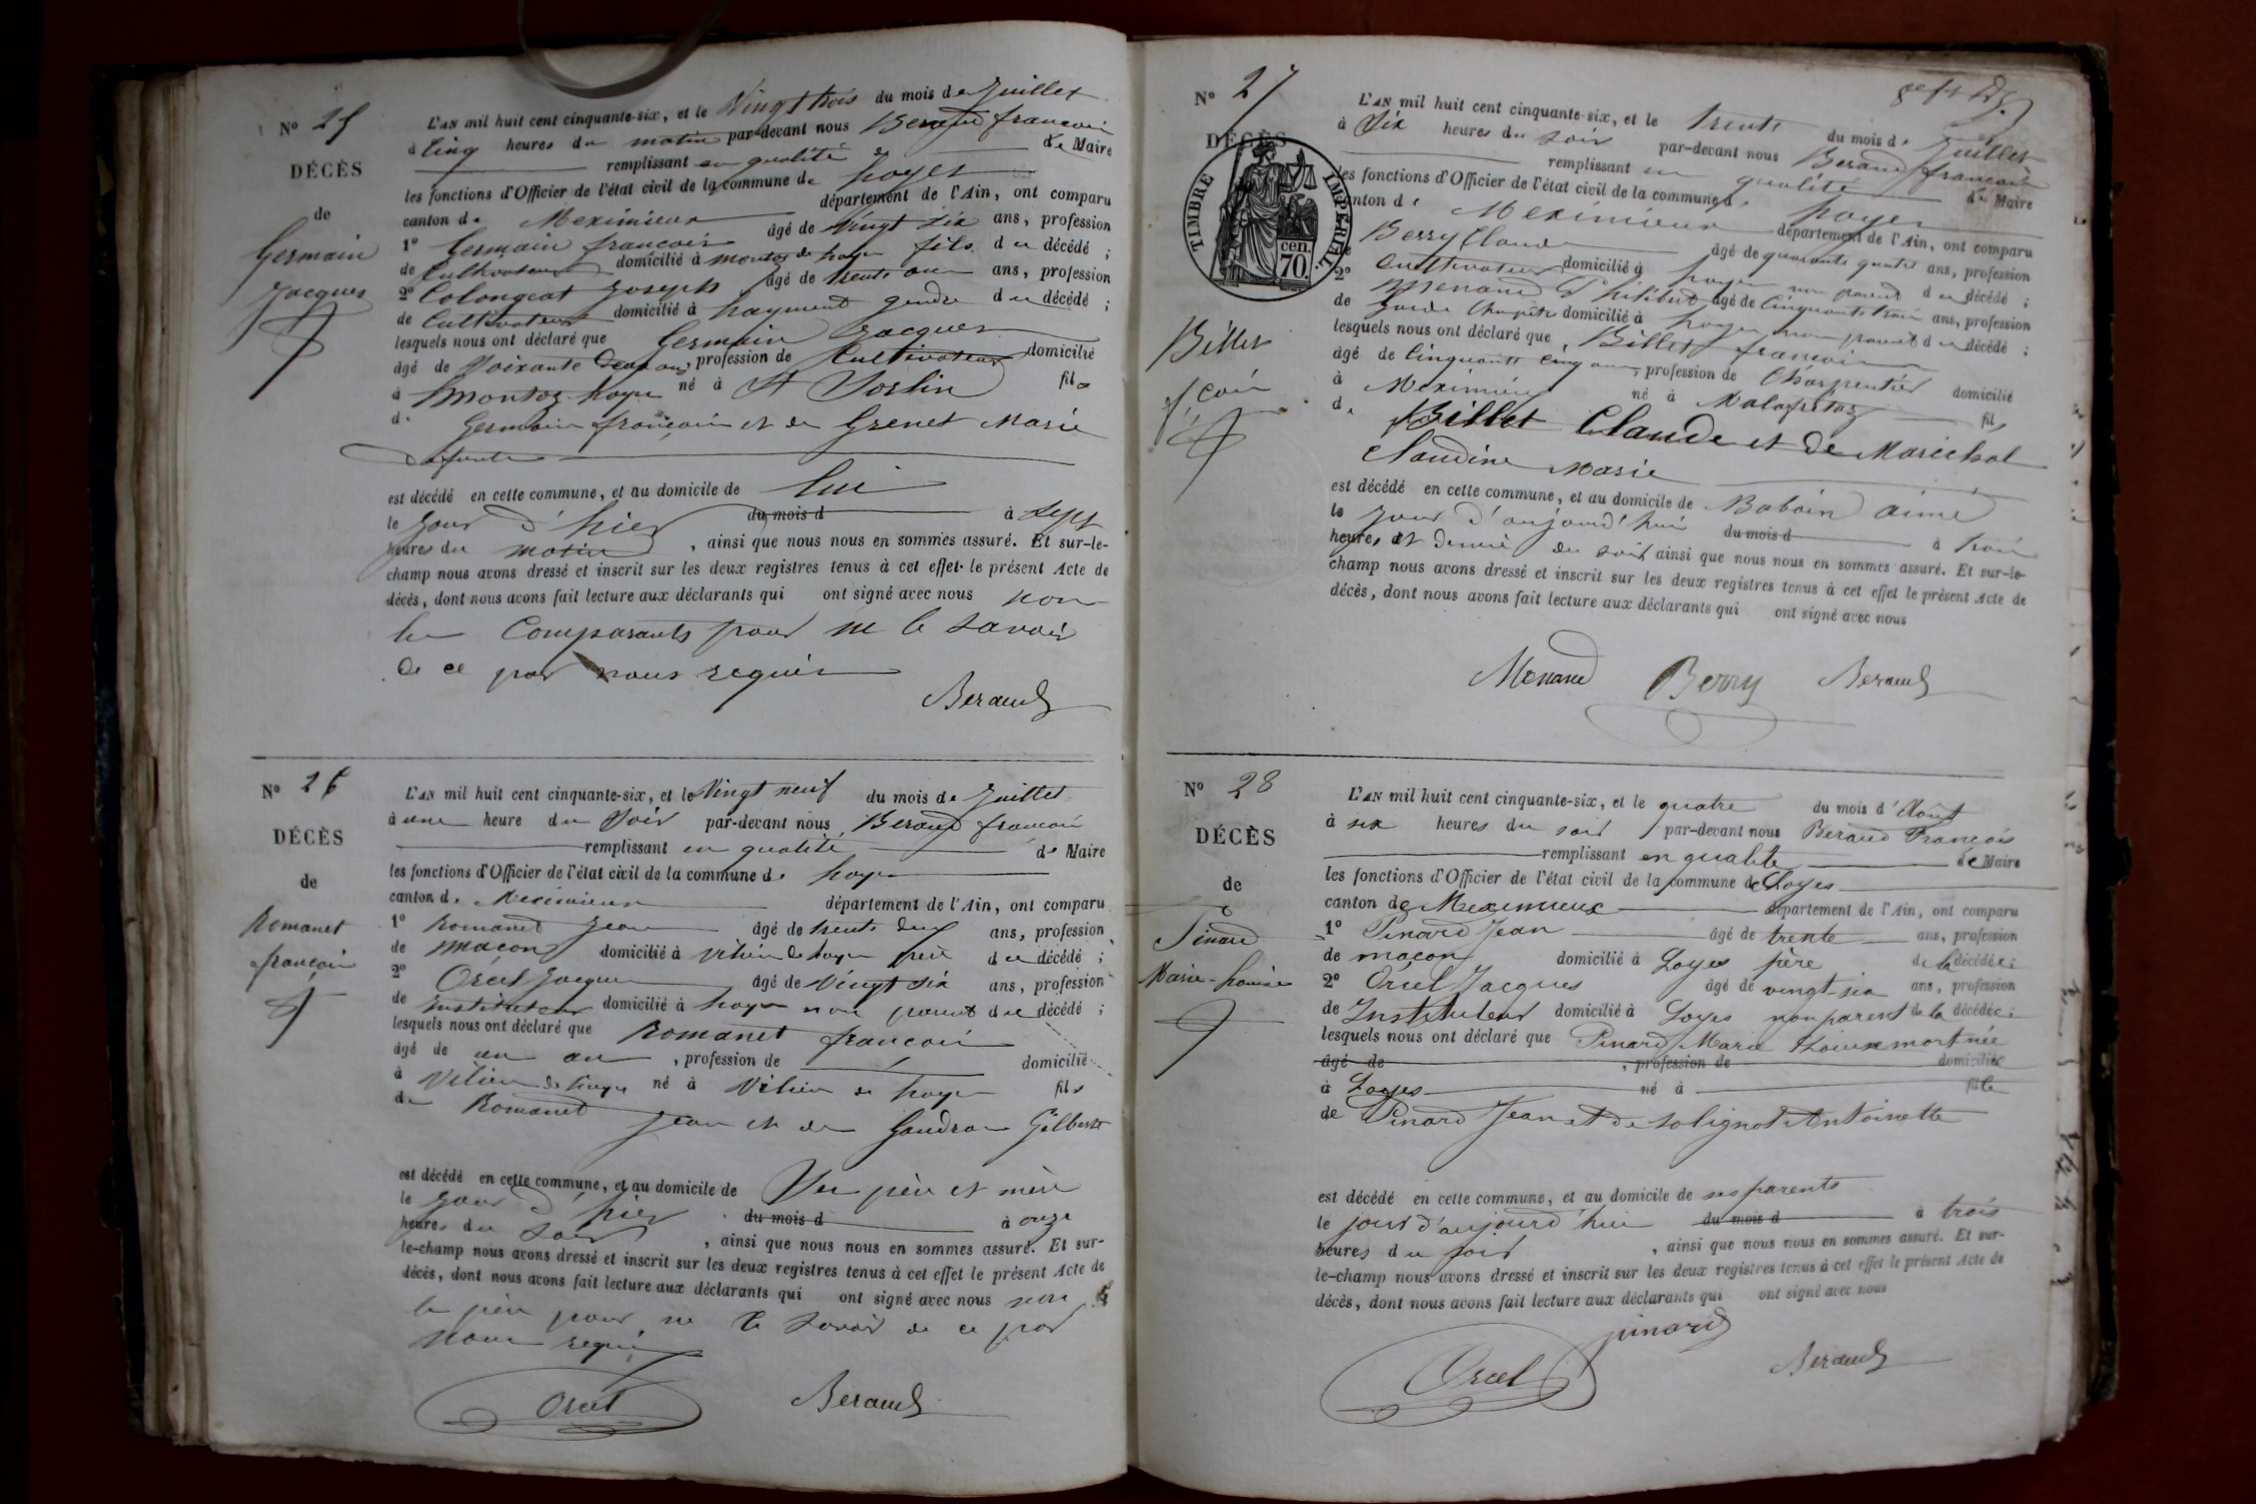 No 25
DÉCÈS
de
Germain
Jacques
L'AN mil huit cent cinquante-six, et le Vingt trois du mois de Juillet
à Cinq heures du matin par-devant nous Beraud francois
remplissant en qualité de Maire
les fonctions d'Officier de l'état civil de la commune de Loyes
canton de Meximieux département de l'Ain, ont comparu
1° Germain francois âgé de Vingt six ans, profession
de Cultivateur domicilié à Montoz de Loyes fils du décédé ;
2° Colongeat Joseph âgé de trente ans, profession
de Cultivateur domicilié à gendre du décédé ;
lesquels nous ont déclaré que Germain Jacques
âgé de Soixante deux ans, profession de Cultivateur domicilié
à Montoz Loyes né à St Sorlin fils
de Germain françois et de Grenet Marie
défunts
est décédé en cette commune, et au domicile de lui
le Jour d'hier du mois d à Sept
heures du matin, ainsi que nous nous en sommes assuré. Et sur-le-
champ nous avons dressé et inscrit sur les deux registres tenus à cet effet le présent Acte de
décès, dont nous avons fait lecture aux déclarants qui ont signé avec nous non
les Comparants pour ne le savoir
de ce par nous requis
Beraud
No 26
DÉCÈS
de
Romanet
francois
L'AN mil huit cent cinquante-six, et le Vingt neuf du mois de Juillet
à une heure du Soir par-devant nous Beraud francois
remplissant en qualité de Maire
les fonctions d'Officier de l'état civil de la commune de Loyes
canton de Meximieux département de l'Ain, ont comparu
1° Romanet Jean âgé de trente deux ans, profession
de maçon domicilié à Vilieu de Loyes père du décédé ;
2° Orcel Jacques âgé de Vingt six ans, profession
de instituteur domicilié à Loyes non parent du décédé ;
lesquels nous ont déclaré que Romanet francois
âgé de un an, profession de domicilié
à Vilieu de Loyes né à Vilieu de Loyes fils
de Romanet Jean et de Gaudron Gilberte
est décédé en cette commune, et au domicile de Ses père et mère
le Jour d'hier du mois d à onze
heures du Soir, ainsi que nous nous en sommes assuré. Et sur-
le-champ nous avons dressé et inscrit sur les deux registres tenus à cet effet le présent Acte de
décès, dont nous avons fait lecture aux déclarants qui ont signé avec nous non
le père pour ne le savoir de ce par
nous requis
Orcel Beraud
No 27
DÉCÈS
TIMBRE IMPÉRIAL
cen.
70.
Billet
L'AN mil huit cent cinquante-six, et le Trente du mois de Juillet
à Six heures du soir par-devant nous Beraud francois
remplissant en qualité de Maire
les fonctions d'Officier de l'état civil de la commune de Loyes
canton de Meximieux département de l'Ain, ont comparu
Berry Claude âgé de quarante quatre ans, profession
Cultivateur domicilié à Loyes non parent du décédé ;
2° Menand Philibert âgé de Cinquante trois ans, profession
de Garde Champêtre domicilié à Loyes non parent du décédé ;
lesquels nous ont déclaré que Billet francois
âgé de Cinquante Cinq ans, profession de Charpentier domicilié
à Meximieux né à Malafretaz fils
de Billet Claude et de Maréchal
Claudine Marie
est décédé en cette commune, et au domicile de Baboin aimé
le Jour d'aujourd'hui du mois d à trois
heures et demie du soir ainsi que nous nous en sommes assuré. Et sur-le-
champ nous avons dressé et inscrit sur les deux registres tenus à cet effet le présent Acte de
décès, dont nous avons fait lecture aux déclarants qui ont signé avec nous
Menand Berry Beraud
No 28
DÉCÈS
de
Pinard
Marie-Louise
L'AN mil huit cent cinquante-six, et le quatre du mois d'Août
à six heures du soir par-devant nous Beraud François
remplissant en qualité de Maire
les fonctions d'Officier de l'état civil de la commune de Loyes
canton de Meximieux département de l'Ain, ont comparu
1° Pinard Jean âgé de trente ans, profession
de maçon domicilié à Loyes père de la décédée ;
2° Orcel Jacques âgé de vingt-six ans, profession
de Instituteur domicilié à Loyes non parent de la décédée ;
lesquels nous ont déclaré que Pinard Marie Louise mort née
âgé de , profession de domicilié
à Loyes né à fille
de Pinard Jean et de Solignot Antoinette
est décédé en cette commune, et au domicile de ses parents
le jour d'aujourd'hui du mois d à trois
heures du soir, ainsi que nous nous en sommes assuré. Et sur-
le-champ nous avons dressé et inscrit sur les deux registres tenus à cet effet le présent Acte de
décès, dont nous avons fait lecture aux déclarants qui ont signé avec nous
pinard
Orcel Beraud